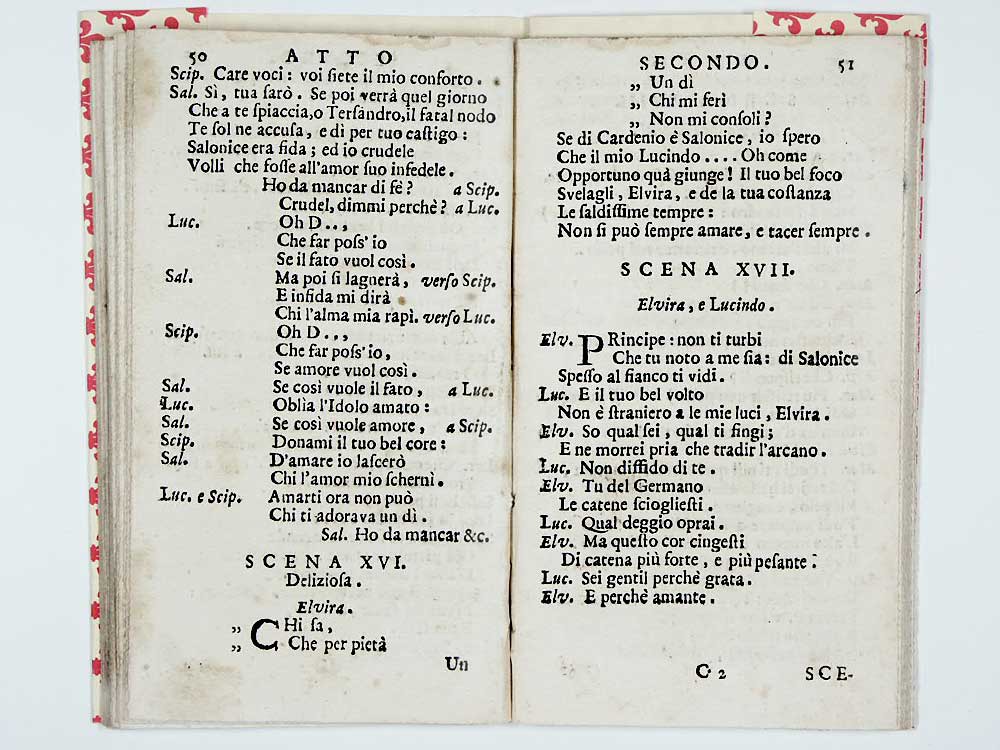 50 ATTO
Scip. Care voci: voi ſiete il mio conforto.
Sal. Sì, tua ſarò. Se poi verrà quel giorno
Che a te ſpiaccia, o Terſandro, il fatal nodo
Te ſol ne accuſa, e dì per tuo caſtigo:
Salonice era fida; ed io crudele
Volli che foſſe all'amor ſuo infedele.
Ho da mancar di fè? a Scip.
Crudel, dimmi perchè? a Luc.
Luc. Oh D..,
Che far poſs' io
Se il fato vuol così.
Sal. Ma poi ſi lagnerà, verſo Scip.
E infida mi dirà
Chi l'alma mia rapì. verſo Luc.
Scip. Oh D..,
Che far poſs' io,
Se amore vuol così.
Sal. Se così vuole il fato, a Luc.
Luc. Oblìa l'Idolo amato:
Sal. Se così vuole amore, a Scip.
Scip. Donami il tuo bel core:
Sal. D'amare io laſcerò
Chi l'amor mio ſchernì.
Luc. e Scip. Amarti ora non può
Chi ti adorava un dì.
Sal. Ho da mancar &c.
SCENA XVI.
Delizioſa.
Elvira.
„ CHi ſa,
„ Che per pietà
Un
SECONDO. 51
„ Un dì
„ Chi mi ferì
„ Non mi conſoli?
Se di Cardenio è Salonice, io ſpero
Che il mio Lucindo .... Oh come
Opportuno quà giunge! Il tuo bel foco
Svelagli, Elvira, e de la tua coſtanza
Le ſaldiſſime tempre:
Non ſi può ſempre amare, e tacer ſempre.
SCENA XVII.
Elvira, e Lucindo.
Elv. PRincipe: non ti turbi
Che tu noto a me ſia: di Salonice
Speſſo al fianco ti vidi.
Luc. E il tuo bel volto
Non è ſtraniero a le mie luci, Elvira.
Elv. So qual ſei, qual ti fingi;
E ne morrei pria che tradir l'arcano.
Luc. Non diffido di te.
Elv. Tu del Germano
Le catene ſcioglieſti.
Luc. Qual deggio oprai.
Elv. Ma queſto cor cingeſti
Di catena più forte, e più peſante:
Luc. Sei gentil perchè grata.
Elv. E perchè amante.
C 2 SCE-